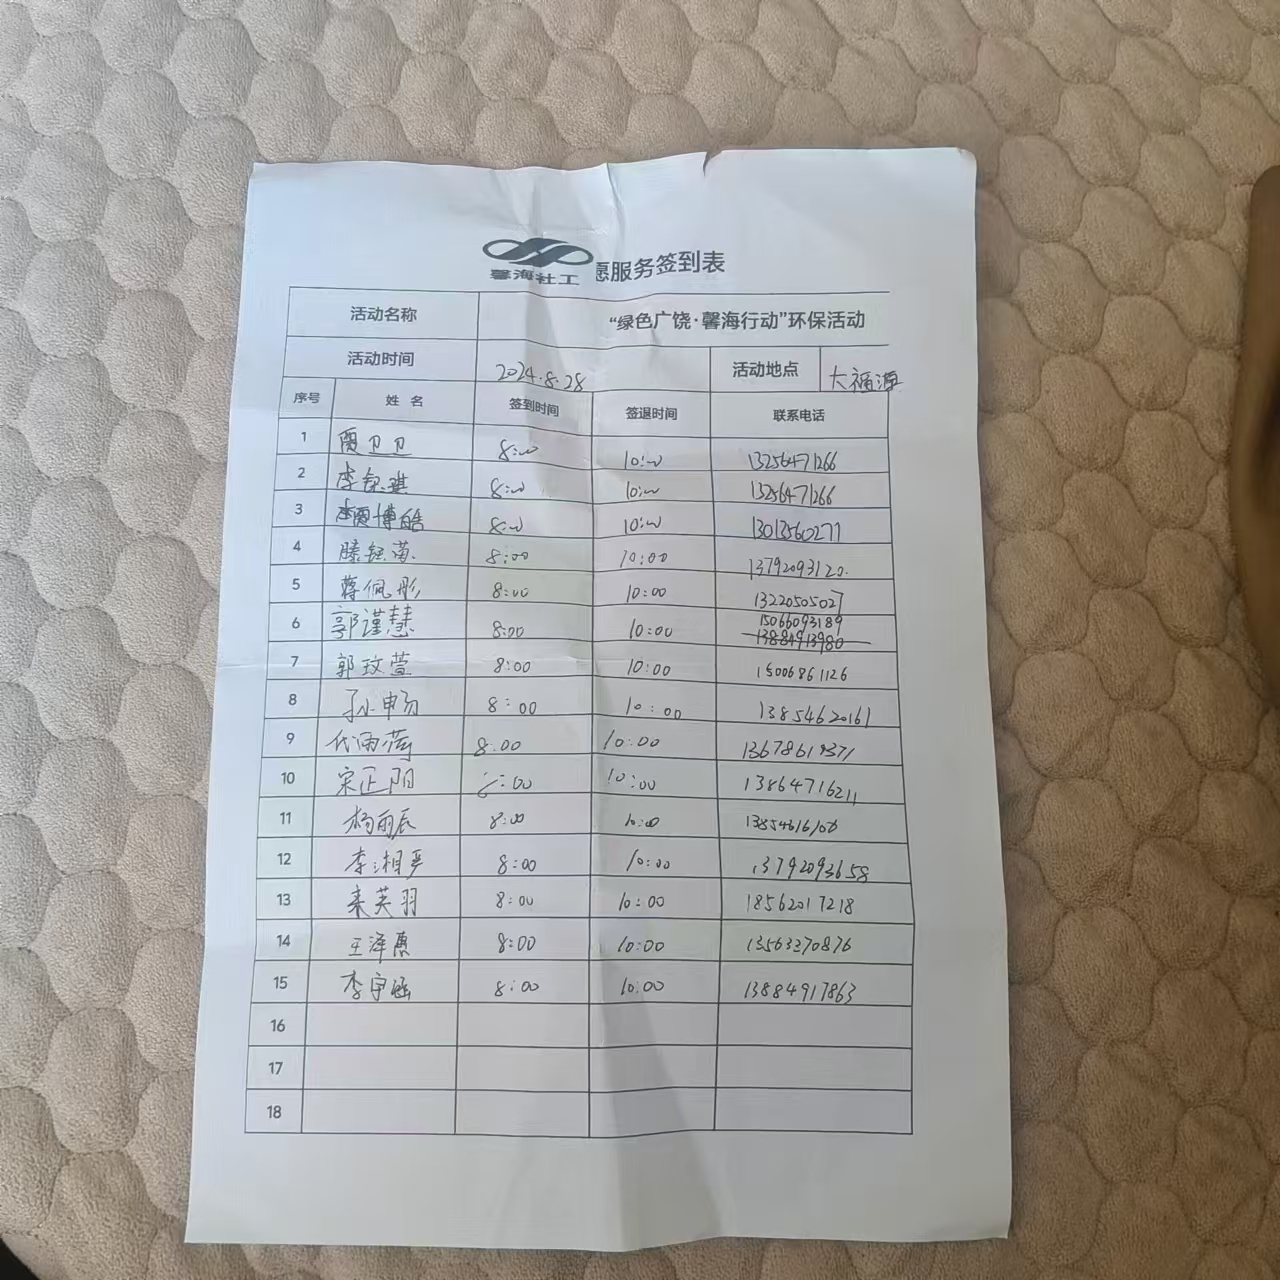 馨海社工
愿服务签到表
活动名称 “绿色广饶·馨海行动”环保活动
活动时间 2024.8.28 活动地点 大福源
序号 姓名 签到时间 签退时间 联系电话
1 贾卫卫 8:00 10:00 13256471266
2 李锦琪 8:00 10:00 13256471266
3 博皓 8:00 10:00 1301356027
4 滕 8:00 10:00 13792093120.
5 蒋佩彤 8:00 10:00 1322050502
6 郭谨慧 8:00 10:00 15066093189
13884913980
7 郭玟萱 8:00 10:00 15006861126
8 孙申易 8:00 10:00 13854620161
9 代雨荷 8:00 10:00 13678619371
10 宋正阳 8:00 10:00 13864716211
11 杨雨辰 8:00 10:00
12 李湘 8:00 10:00 13792093658
13 秦芙羽 8:00 10:00 18562017218
14 王泽惠 8:00 10:00 13563370876
15 李宇涵 8:00 10:00 13884917863
16
17
18